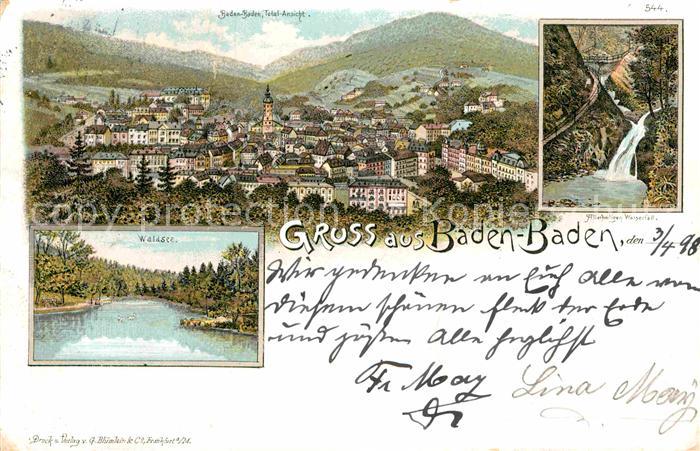 Baden-Baden, Total-Ansicht.
544.
Allerheiligen Wasserfall.
Gruss aus Baden-Baden, den 3/4 98
Waldsee.
Wir gedenken an Euch Alle von
diesem schönen Fleck der Erde
und grüßen Alle herzlichst
Fr. May Lina May
Druck u. Verlag v. G. Blümlein & Co., Frankfurt a/M.
copyright protection